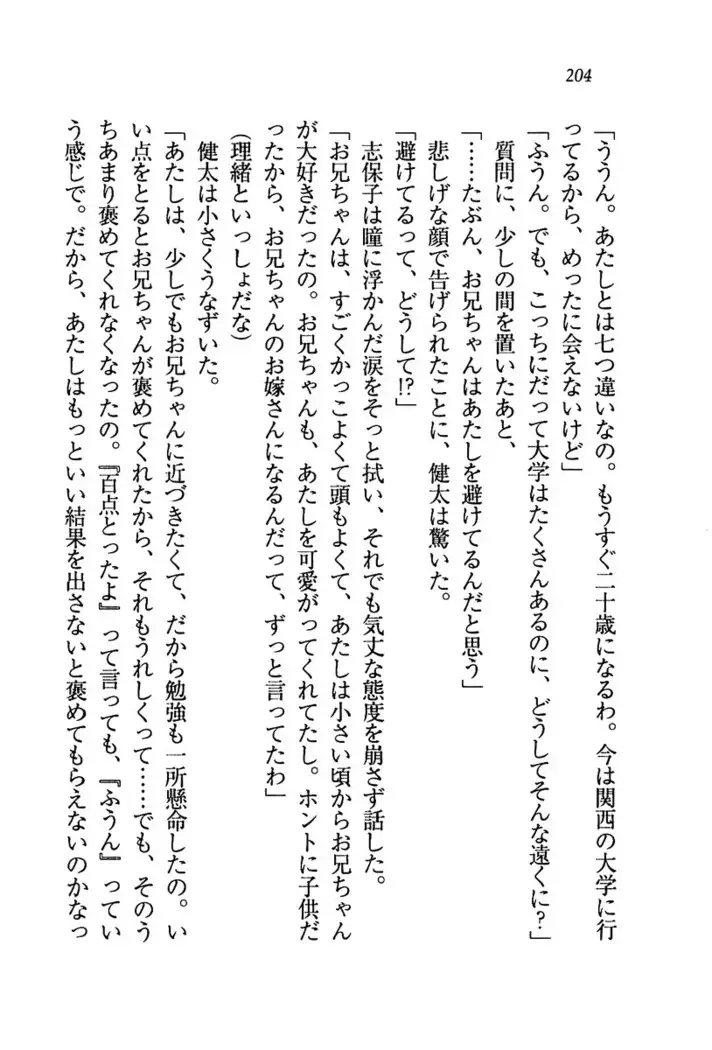 204
「ううん。あたしとは七つ違いなの。もうすぐ二十歳になるわ。今は関西の大学に行
ってるから、めったに会えないけど」
「ふうん。でも、こっちにだって大学はたくさんあるのに、どうしてそんな遠くに?」
質問に、少しの間を置いたあと、
「……たぶん、お兄ちゃんはあたしを避けてるんだと思う」
悲しげな顔で告げられたことに、健太は驚いた。
「避けてるって、どうして!?」
志保子は瞳に浮かんだ涙をそっと拭い、それでも気丈な態度を崩さず話した。
「お兄ちゃんは、すごくかっこよくて頭もよくて、あたしは小さい頃からお兄ちゃん
が大好きだったの。お兄ちゃんも、あたしを可愛がってくれてたし。ホントに子供だ
ったから、お兄ちゃんのお嫁さんになるんだって、ずっと言ってたわ」
(理緒といっしょだな)
健太は小さくうなずいた。
「あたしは、少しでもお兄ちゃんに近づきたくて、だから勉強も一所懸命したの。い
い点をとるとお兄ちゃんが褒めてくれたから、それもうれしくって……でも、そのう
ちあまり褒めてくれなくなったの。『百点とったよ』って言っても、『ふうん』ってい
う感じで。だから、あたしはもっといい結果を出さないと褒めてもらえないのかなっ